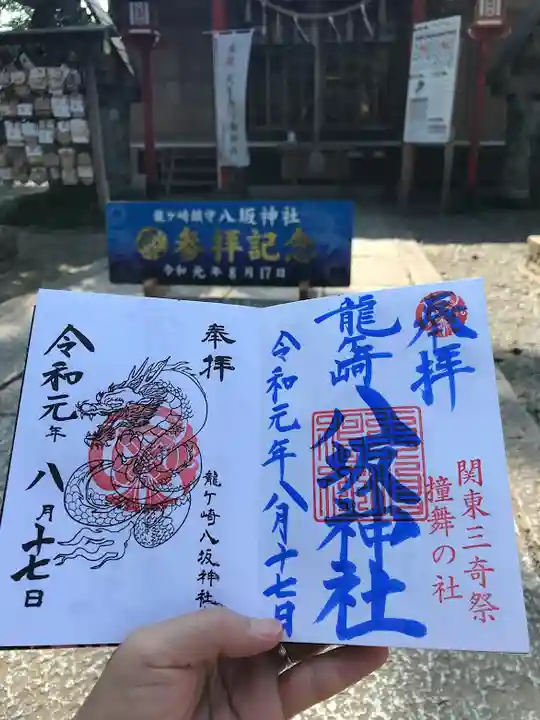 龍ヶ崎鎮守八坂神社
参拝記念
令和元年8月17日
奉拝
龍ヶ崎
八坂神社
令和元年八月十七日
関東三奇祭
撞舞の社
奉拝
龍ケ崎八坂神社
令和元年
八月十七日